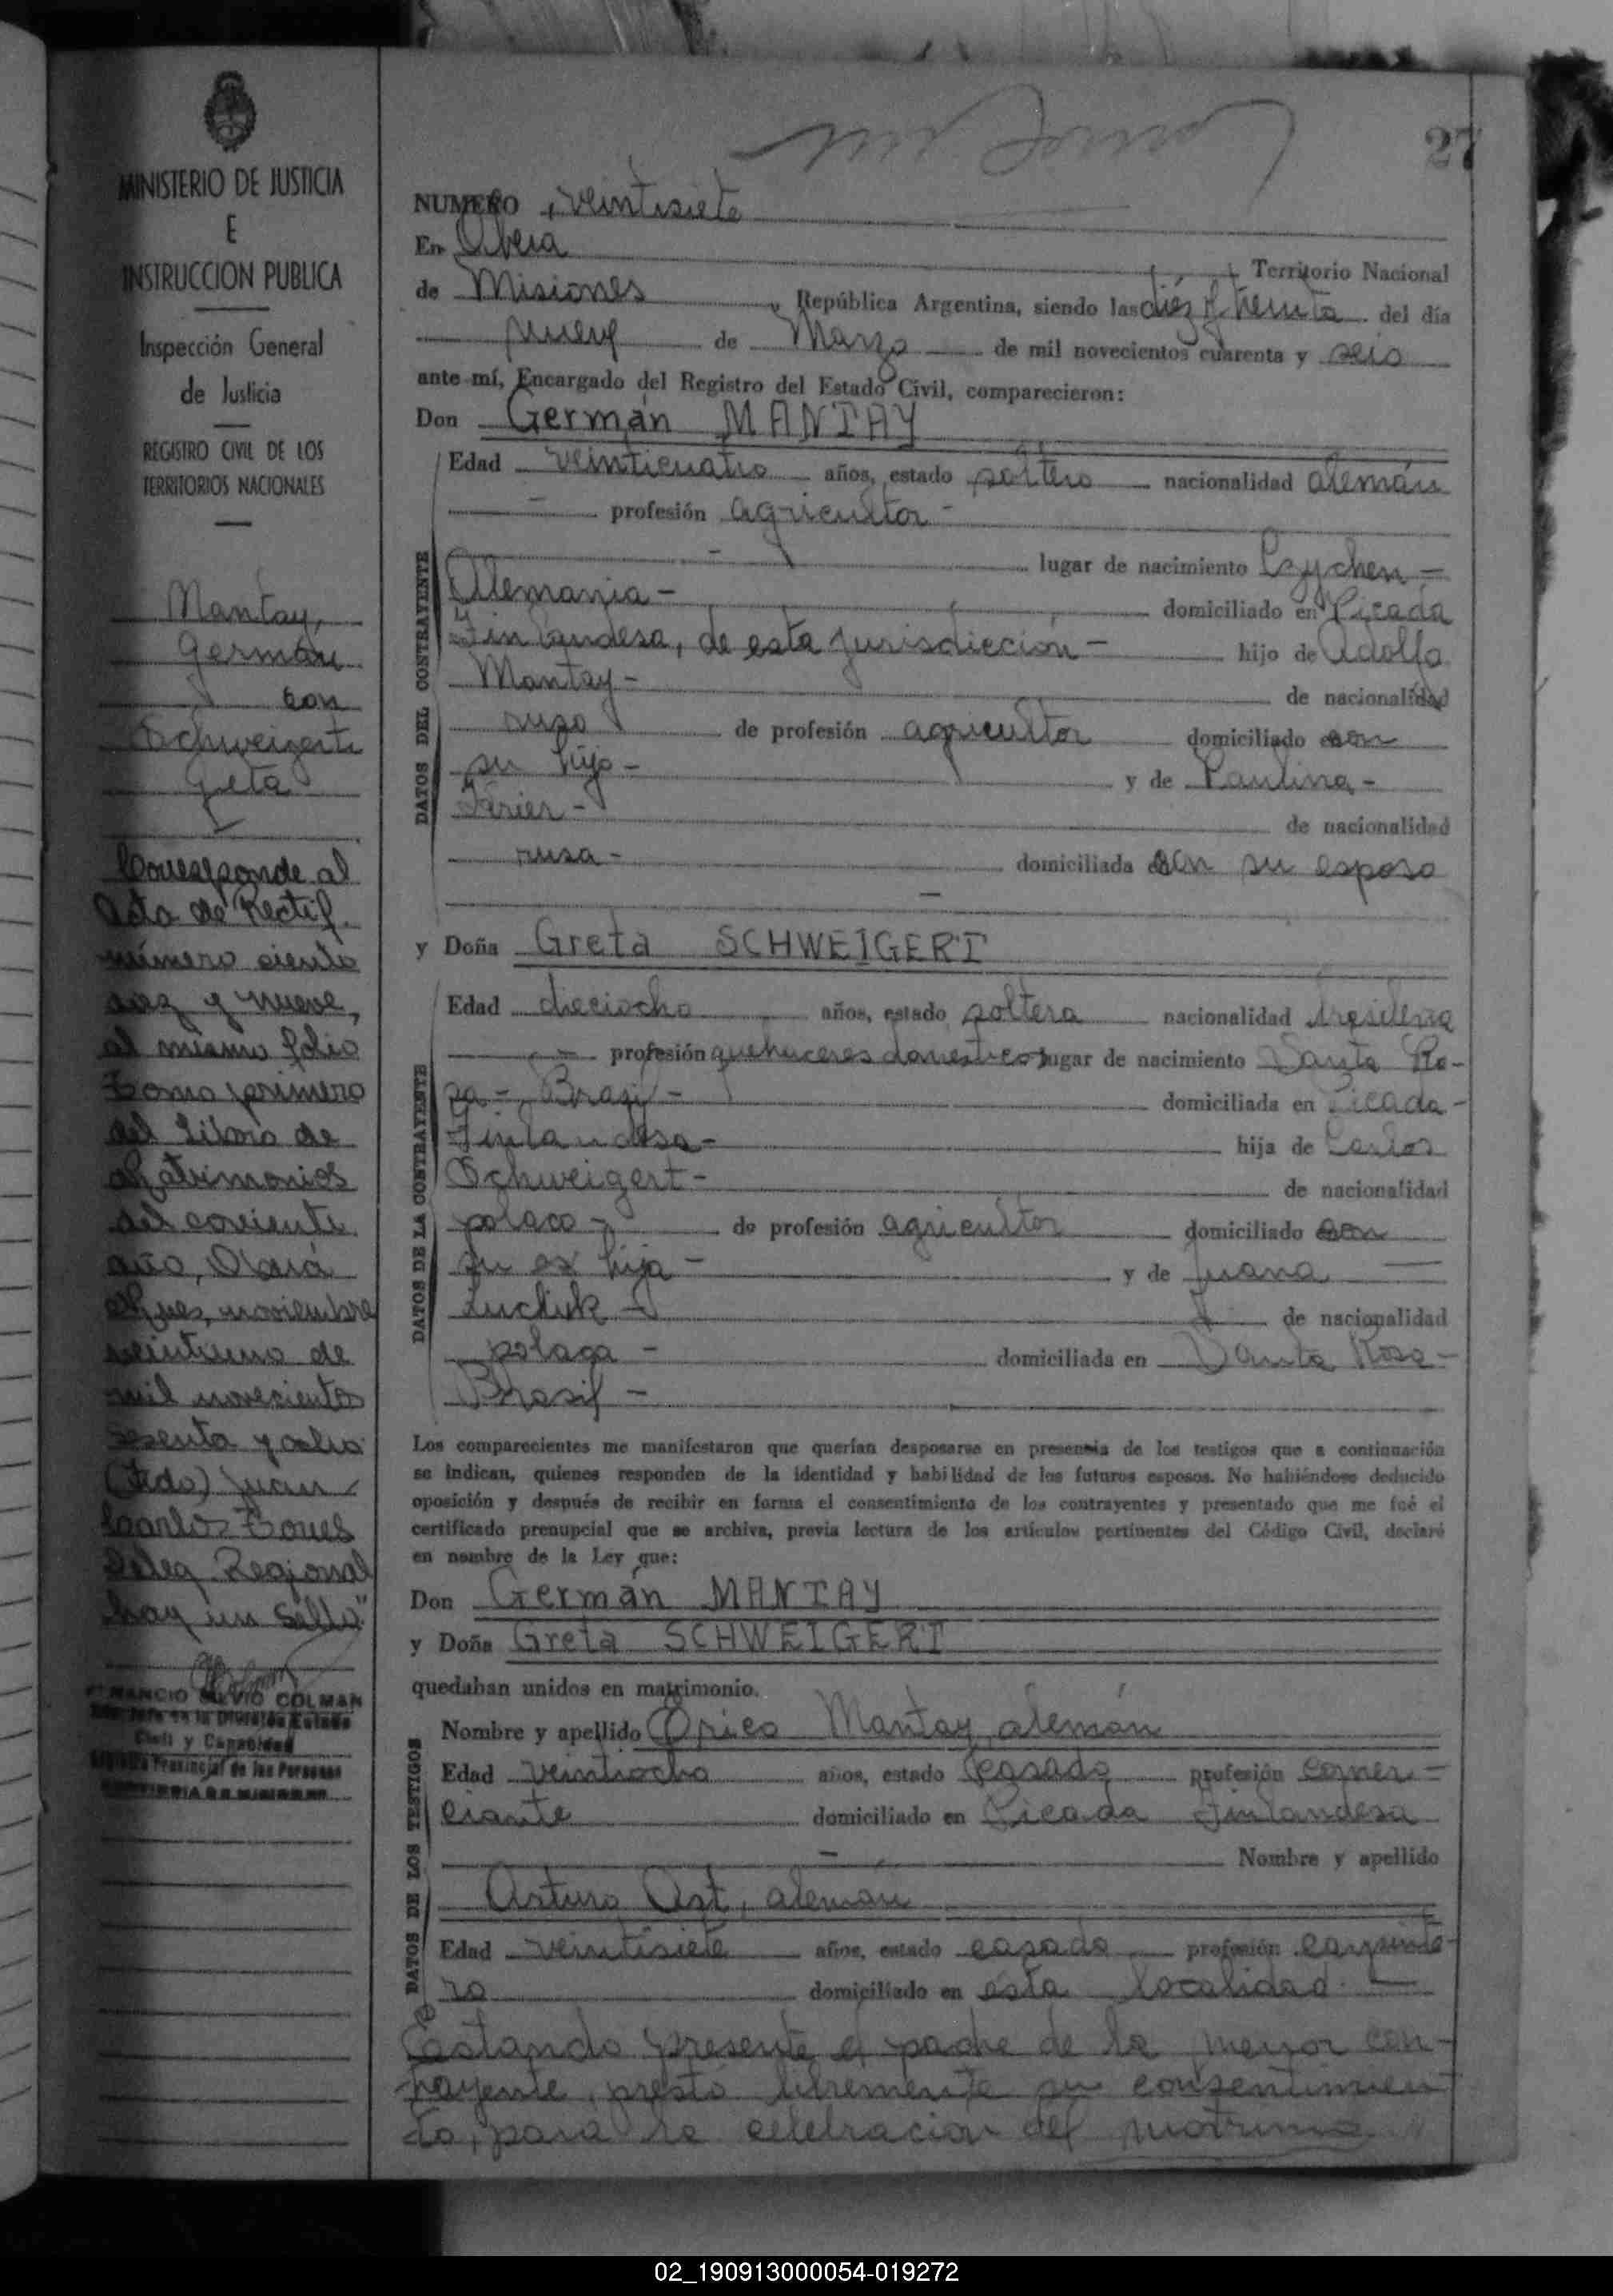 27
MINISTERIO DE JUSTICIA
E
INSTRUCCION PUBLICA
Inspección General
de Justicia
REGISTRO CIVIL DE LOS
TERRITORIOS NACIONALES
Mantay,
Germán
con
Schweigert
Greta
Corresponde al
Acta de Rectif.
número ciento
diez y nueve,
al mismo folio
Tomo primero
del Libro de
Matrimonios
del corriente
año, Oberá
Mnes, noviembre
veintiuno de
mil novecientos
sesenta y ocho
(Fdo) Juan
Carlos Torres
Deleg Regional
hay un sello"
SILVIO COLMAN
Civil y Capacidad
Provincial de las Personas
NUMERO veintisiete
En Oberá Territorio Nacional
de Misiones, República Argentina, siendo las diéz y treinta del día
nueve de Marzo de mil novecientos cuarenta y seis
ante mí, Encargado del Registro del Estado Civil, comparecieron:
Don Germán MANTAY
DATOS DEL CONTRAYENTE
Edad veinticuatro años, estado soltero nacionalidad alemán
profesión agricultor -
lugar de nacimiento Czychen -
Alemania - domiciliado en Picada
Finlandesa, de esta jurisdicción - hijo de Adolfo
Mantay - de nacionalidad
ruso de profesión agricultor domiciliado con
su hijo - y de Paulina -
Järier - de nacionalidad
rusa - domiciliada con su esposo
y Doña Greta SCHWEIGERT
DATOS DE LA CONTRAYENTE
Edad dieciocho años, estado soltera nacionalidad brasilera
profesión quehaceres domésticos lugar de nacimiento Santa Ro-
sa - Brasil - domiciliada en Picada -
Finlandesa - hija de Carlos
Schweigert - de nacionalidad
polaco - de profesión agricultor domiciliado con
su ex hija - y de Juana
Luchik - de nacionalidad
polaca - domiciliada en Santa Rosa -
Brasil -
Los comparecientes me manifestaron que querían desposarse en presencia de los testigos que a continuación
se indican, quienes responden de la identidad y habilidad de los futuros esposos. No habiéndose deducido
oposición y después de recibir en forma el consentimiento de los contrayentes y presentado que me fué el
certificado prenupcial que se archiva, previa lectura de los artículos pertinentes del Código Civil, declaré
en nombre de la Ley que:
Don Germán MANTAY
y Doña Greta SCHWEIGERT
quedaban unidos en matrimonio.
DATOS DE LOS TESTIGOS
Nombre y apellido Erico Mantay, alemán
Edad veintiocho años, estado casado profesión comer-
ciante domiciliado en Picada Finlandesa
Nombre y apellido
Arturo Ast, alemán
Edad veintisiete años, estado casado profesión carpinte-
ro domiciliado en esta localidad. -
Estando presente el padre de la menor con-
trayente, prestó libremente su consentimien
to, para la celebración del matrimo
02_190913000054-019272